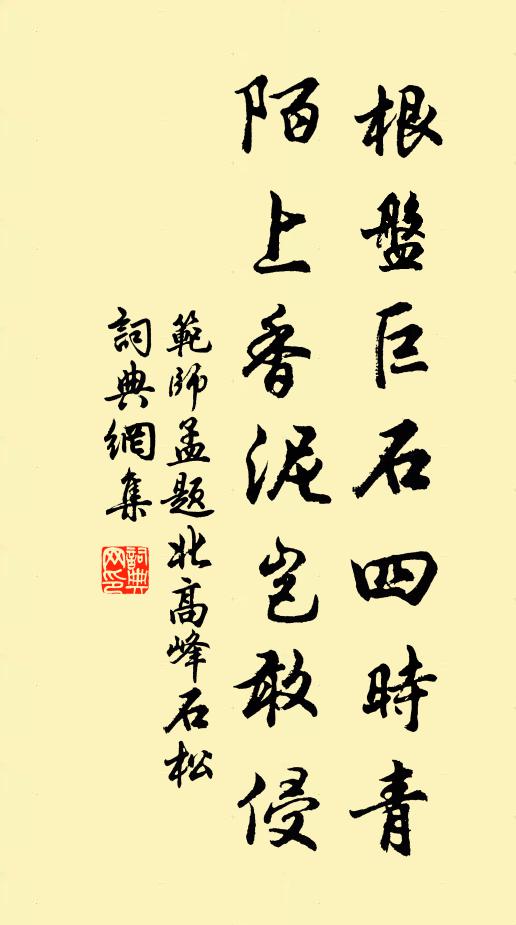 根盤巨石四時青
陌上香泥豈敢侵
範師孟題北高峰石松
詞典網集
詞典
网印